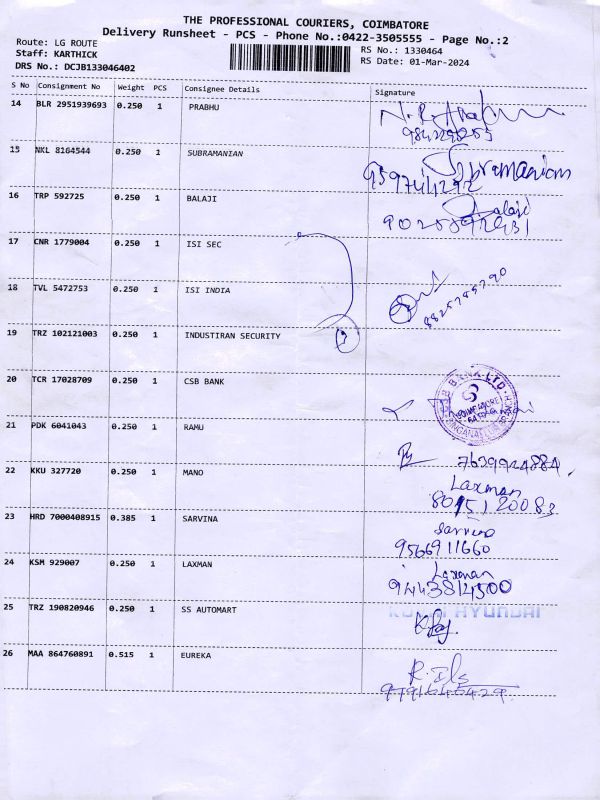 THE PROFESSIONAL COURIERS, COIMBATORE
Delivery Runsheet - PCS - Phone No.:0422-3505555 - Page No.:2
Route: LG ROUTE
Staff: KARTHICK
DRS No.: DCJB133046402
RS No.: 1330464
RS Date: 01-Mar-2024
S No Consignment No Weight PCS Consignee Details Signature
14 BLR 2951939693 0.250 1 PRABHU
15 NKL 8164544 0.250 1 SUBRAMANIAN
16 TRP 592725 0.250 1 BALAJI Balaji
17 CNR 1779004 0.250 1 ISI SEC
18 TVL 5472753 0.250 1 ISI INDIA
19 TRZ 102121003 0.250 1 INDUSTIRAN SECURITY 3
20 TCR 17028709 0.250 1 CSB BANK
21 PDK 6041043 0.250 1 RAMU 7639924884
22 KKU 327720 0.250 1 MANO Laxman
8015120083
23 HRD 7000408915 0.385 1 SARVINA Sarvina
9566911660
24 KSM 929007 0.250 1 LAXMAN Laxman
9443814500
25 TRZ 190820946 0.250 1 SS AUTOMART HYUNDAI
26 MAA 864760891 0.515 1 EUREKA